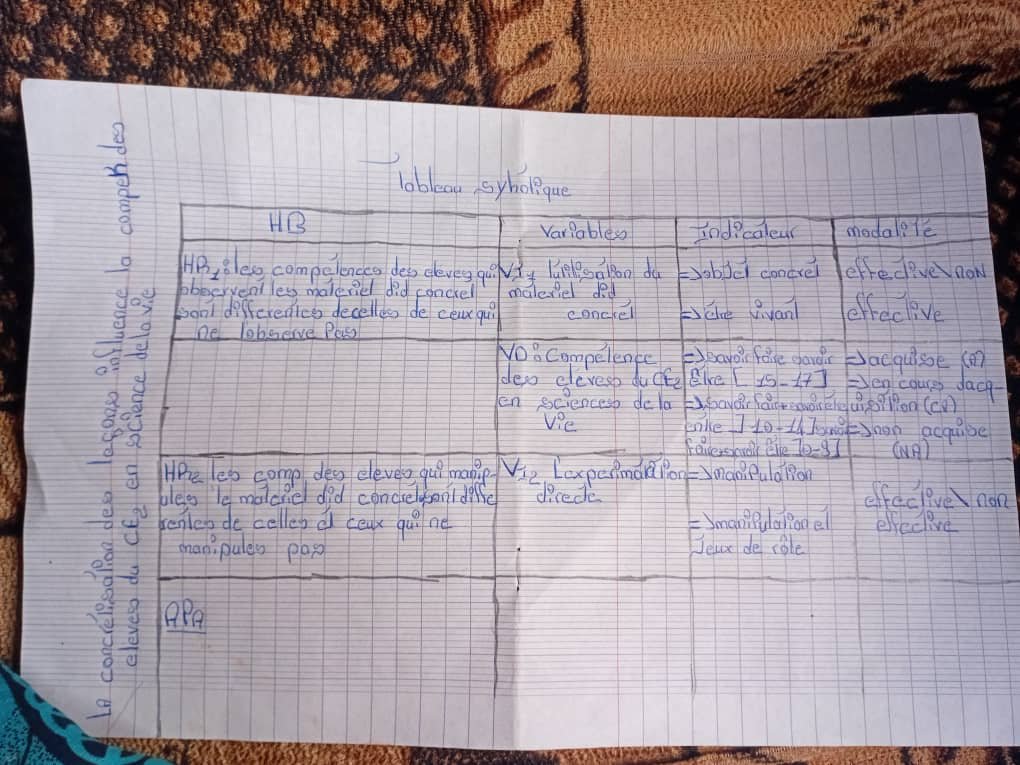 La concretisation des leçons influence la compet des
eleves du CE2 en science de la vie
Tableau syholique
HB
Variables
Indicateur
modalité
HR1: les competences des eleves qui
observent les materiel did concret
sont differentes de celles de ceux qui
ne l'observe pas
VI1 l'utilisation du
materiel did
concret
=> objet concret
=> être vivant
effective \ non
effective
VD: Compétence
des eleves du CE2
en sciences de la
vie
=> savoir faire savoir
être [15-17]
=> savoir fair+savoir être
entre ] 10-14]
faire savoir être ]0-9]
=> acquise (A)
=> en cours d'acq-
uisition (CV)
=> non acquise
(NA)
HR2 les comp des eleves qui manip-
ules le materiel did concret sont diffe
rentes de celles d ceux qui ne
manipules pas
VI2 L'experimentation
directe
=> manipulation
=> manipulation et
Jeux de rôle
effective \ non
effective
APA